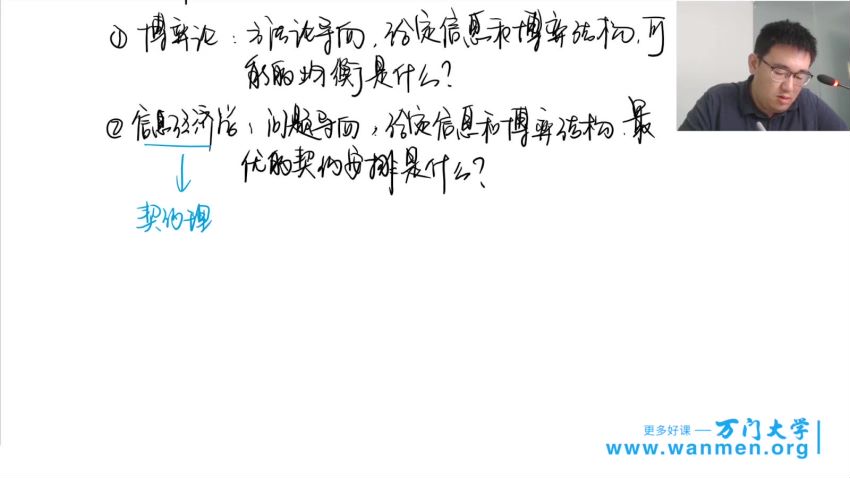 ① 博弈论：方法论导向，给定信息和博弈结构，可
能的均衡是什么？
② 信息经济学：问题导向，给定信息和博弈结构，最
优的契约安排是什么？
契约理
更多好课 — 万门大学
www.wanmen.org